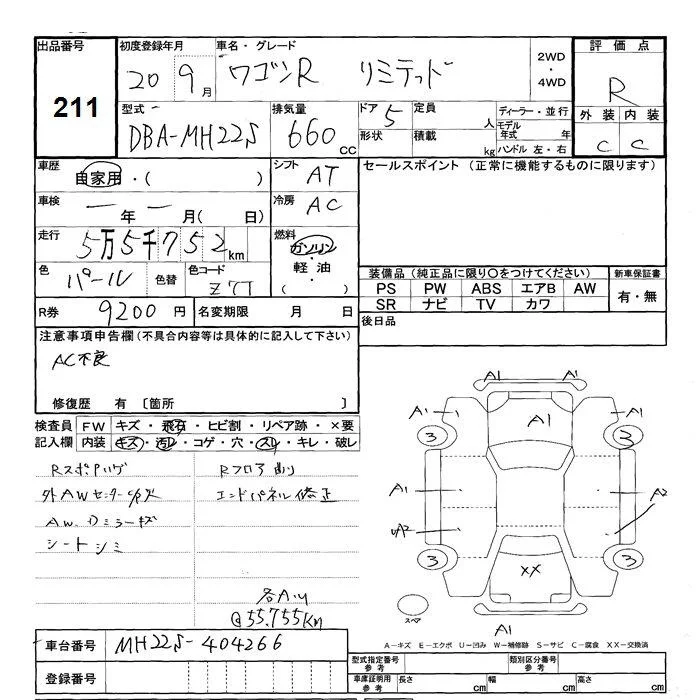 出品番号 211
初度登録年月 20 9月
車名・グレード ワゴンR リミテッド
2WD・4WD
評価点 R
外装 内装
C C
型式 DBA-MH22S
排気量 660cc
ドア 5 定員 人
形状 積載 kg
ディーラー・並行
モデル年式 年
ハンドル 左・右
車歴 自家用・( )
シフト AT
セールスポイント (正常に機能するものに限ります)
車検 ー年ー月( 日)
冷房 AC
走行 5万5千752km
燃料 ガソリン・軽油・( )
色 パール 色替 色コード Z7T
装備品(純正品に限り○をつけてください)
新車保証書 有・無
PS PW ABS エアB AW
SR ナビ TV カワ
R券 9200円
名変期限 月 日
後日品
注意事項申告欄(不具合内容等は具体的に記入して下さい)
AC不良
修復歴 有 〔箇所 〕
検査員記入欄
FW キズ・飛石・ヒビ割・リペア跡・×要
内装 キズ・汚レ・コゲ・穴・スレ・キレ・破レ
Rフロア
エンドパネル修正
AW、Dミラーキズ
シートシミ
@55.755km
A1
A1 A1 A1
3 3
A1 A2
A2
3 XX 3
スペア
A1
A−キズ E−エクボ U−凹み W−補修跡 S−サビ C−腐食 XX−交換済
車台番号 MH22S-404266
登録番号
型式指定番号 参考
類別区分番号 参考
車庫証明用 参考 長さ cm 幅 cm 高さ cm